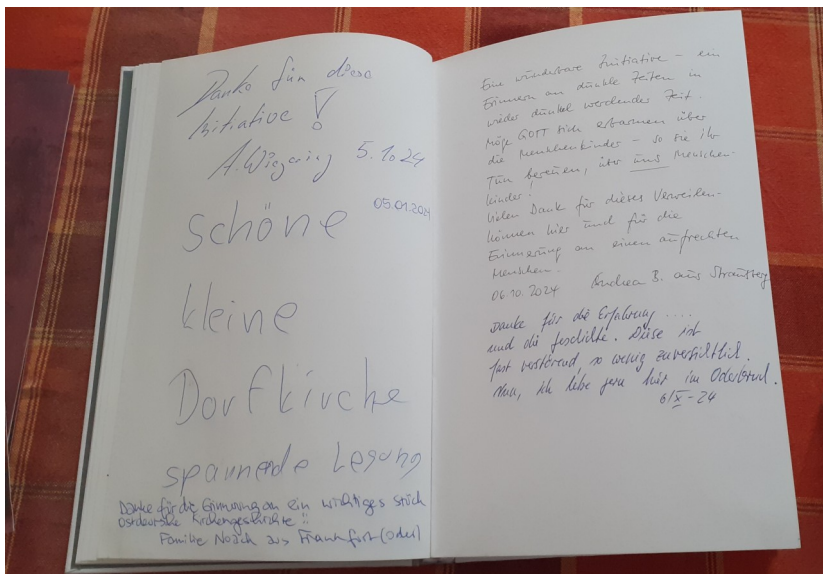 Danke für diese
Initiative!
A. Wigering 5.10.24
05.01.2024
schöne
kleine
Dorfkirche
spannende Lesung
Danke für die Erinnerung an ein wichtiges Stück
ostdeutsche Kirchengeschichte!!
Familie Noack aus Frankfurt (Oder)
Eine wunderbare Initiative – ein
Erinnern an dunkle Zeiten in
wieder dunkel werdender Zeit.
Möge GOTT sich erbarmen über
die Menschenkinder – so sie ihr
Tun bereuen, über uns Menschen-
kinder!
Vielen Dank für dieses Verweilen-
können hier und für die
Erinnerung an einen aufrechten
Menschen.
06.10.2024 Andrea B. aus Strausberg
Danke für die Erfahrung ....
und die Geschichte. Diese ist
fast verstörend, so wenig zuversichtlich.
Nun, ich lebe gern hier im Oderbruch.
6/X-24